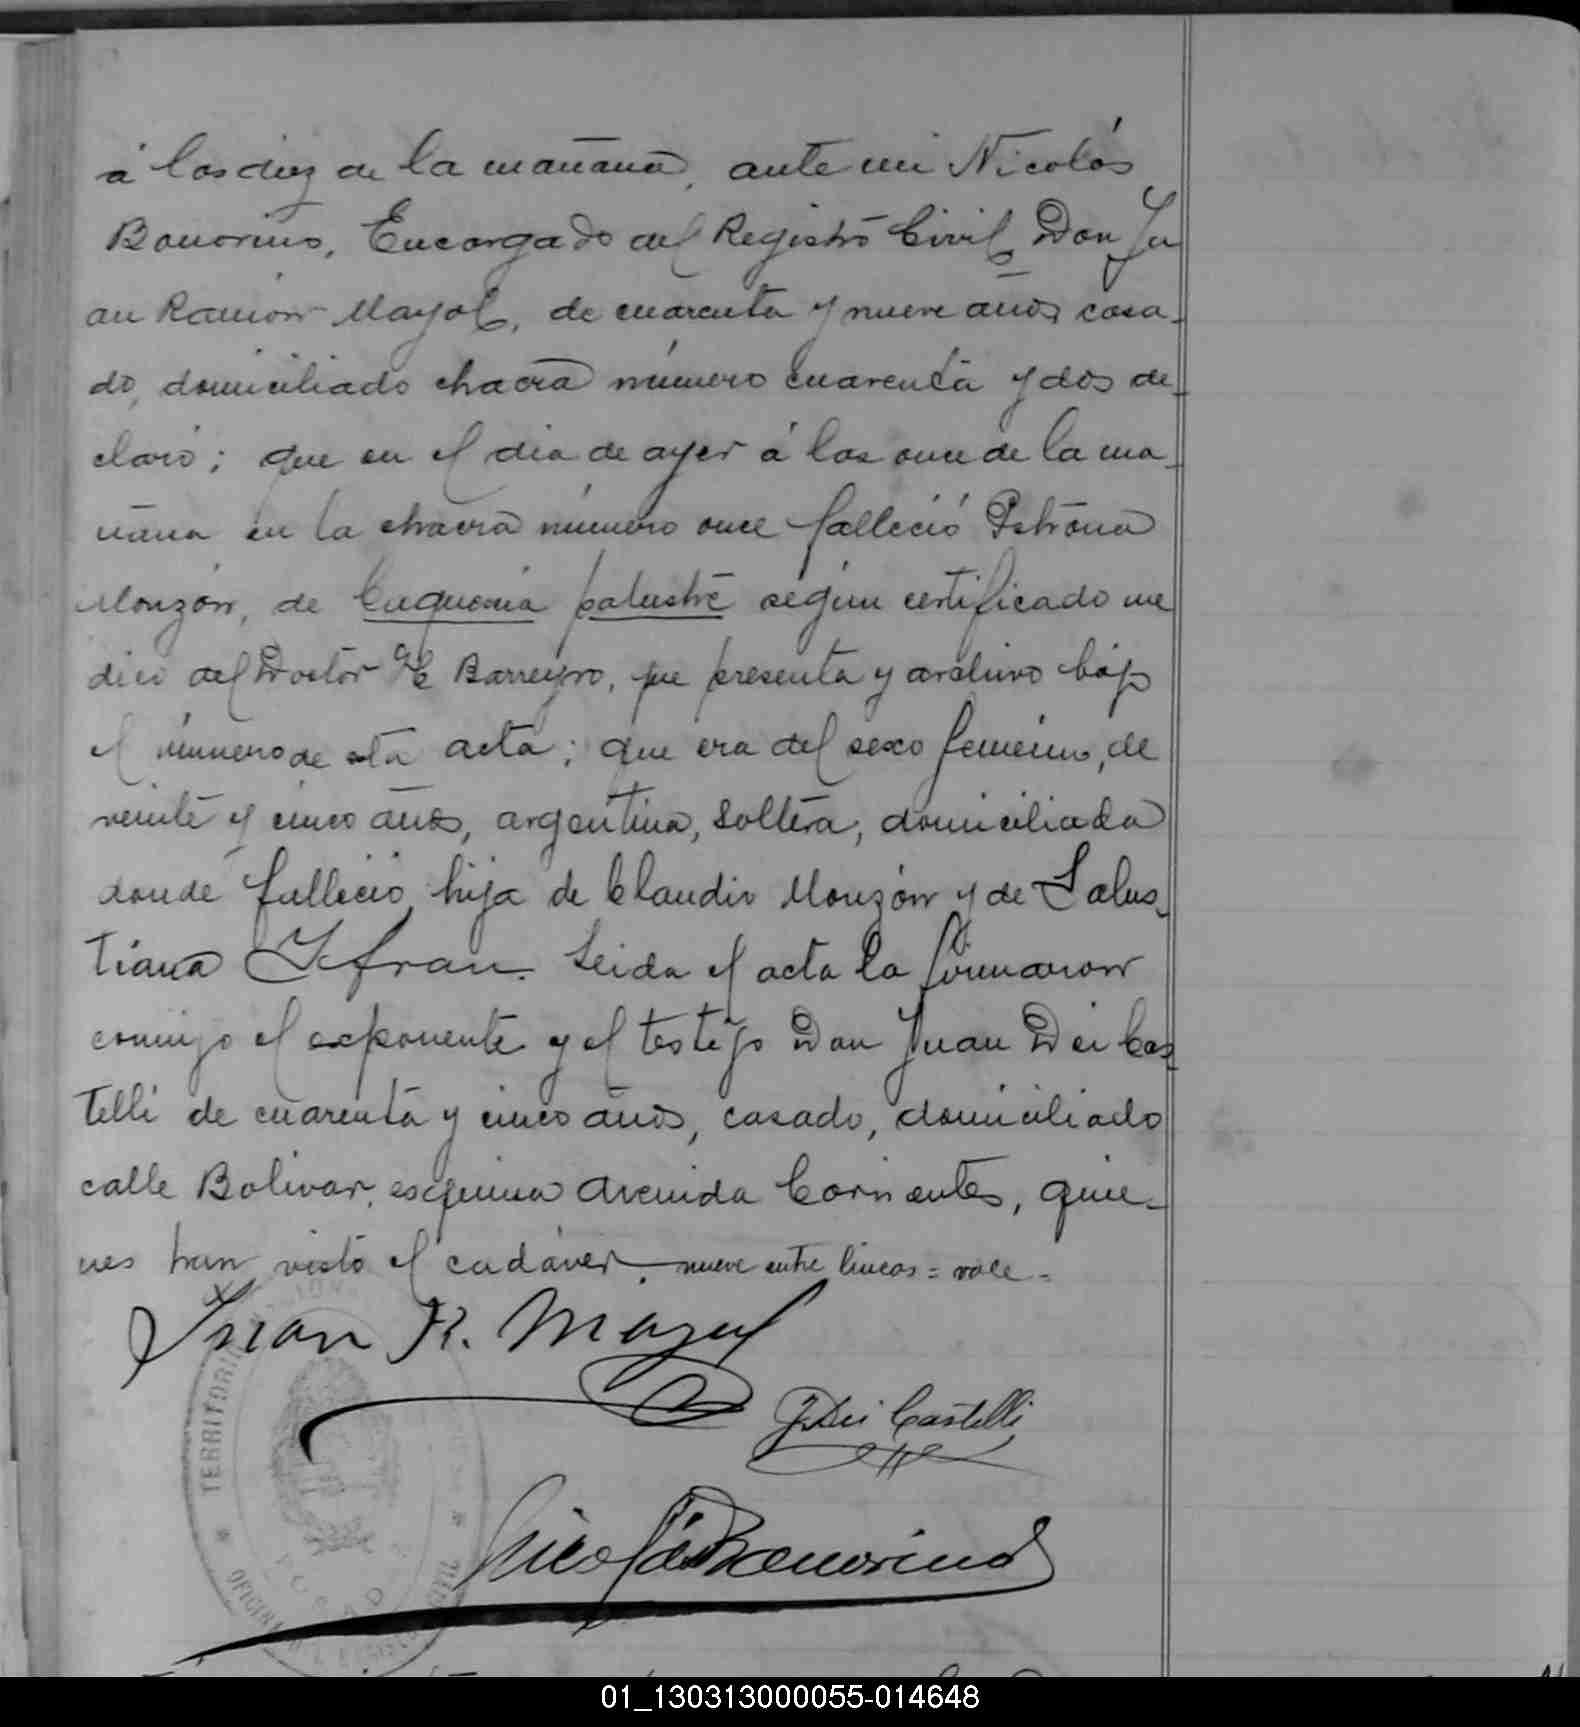 á las diez de la mañana, ante mi Nicolás
Bonorino, Encargado del Registro Civil, Don Ju
an Ramón Mayol, de cuarenta y nueve años casa-
do, domiciliado chacra número cuarenta y dos de-
claró; que en el dia de ayer á las once de la ma-
ñana en la chacra número once falleció Petrona
Monzón, de Caquexia palustre según certificado me
dico del Doctor H Barreyro, que presenta y archivo bajo
el número de esta acta; que era del sexo femenino, de
veinte y cinco años, argentina, soltera, domiciliada
donde falleció, hija de Claudio Monzón y de Salus-
tiana Ifran. Leida el acta la firmaron
conmigo el exponente y el testigo Don Juan Dei Cas-
telli de cuarenta y cinco años, casado, domiciliado
calle Bolivar, esquina Avenida Corrientes, quie-
nes han visto el cadáver. nueve entre lineas = vale =
Juan R. Mayol
J. Dei Castelli
Nicolás Bonorino
TERRITORI
01_130313000055-014648